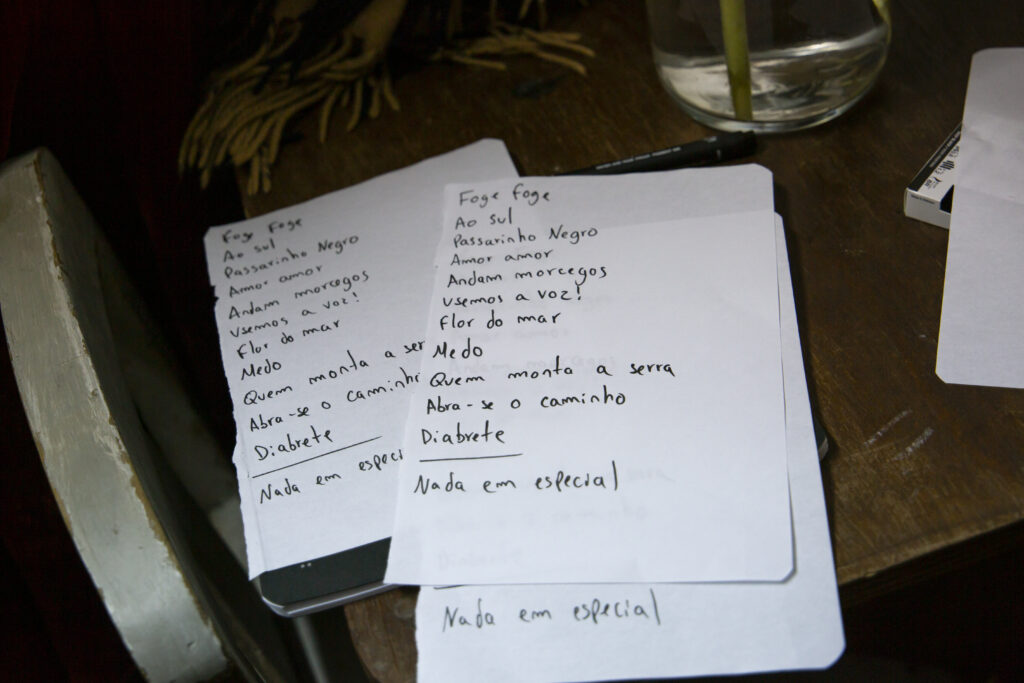 Foge Foge
Ao sul
Passarinho Negro
Amor amor
Andam morcegos
usemos a voz!
Flor do mar
Medo
Quem monta a ser
Abra-se o caminho
Diabrete
Nada em especi
Foge foge
Ao sul
Passarinho Negro
Amor amor
Andam morcegos
usemos a voz!
flor do mar
Medo
Quem monta a serra
Abra-se o caminho
Diabrete
Nada em especial
Nada em especial